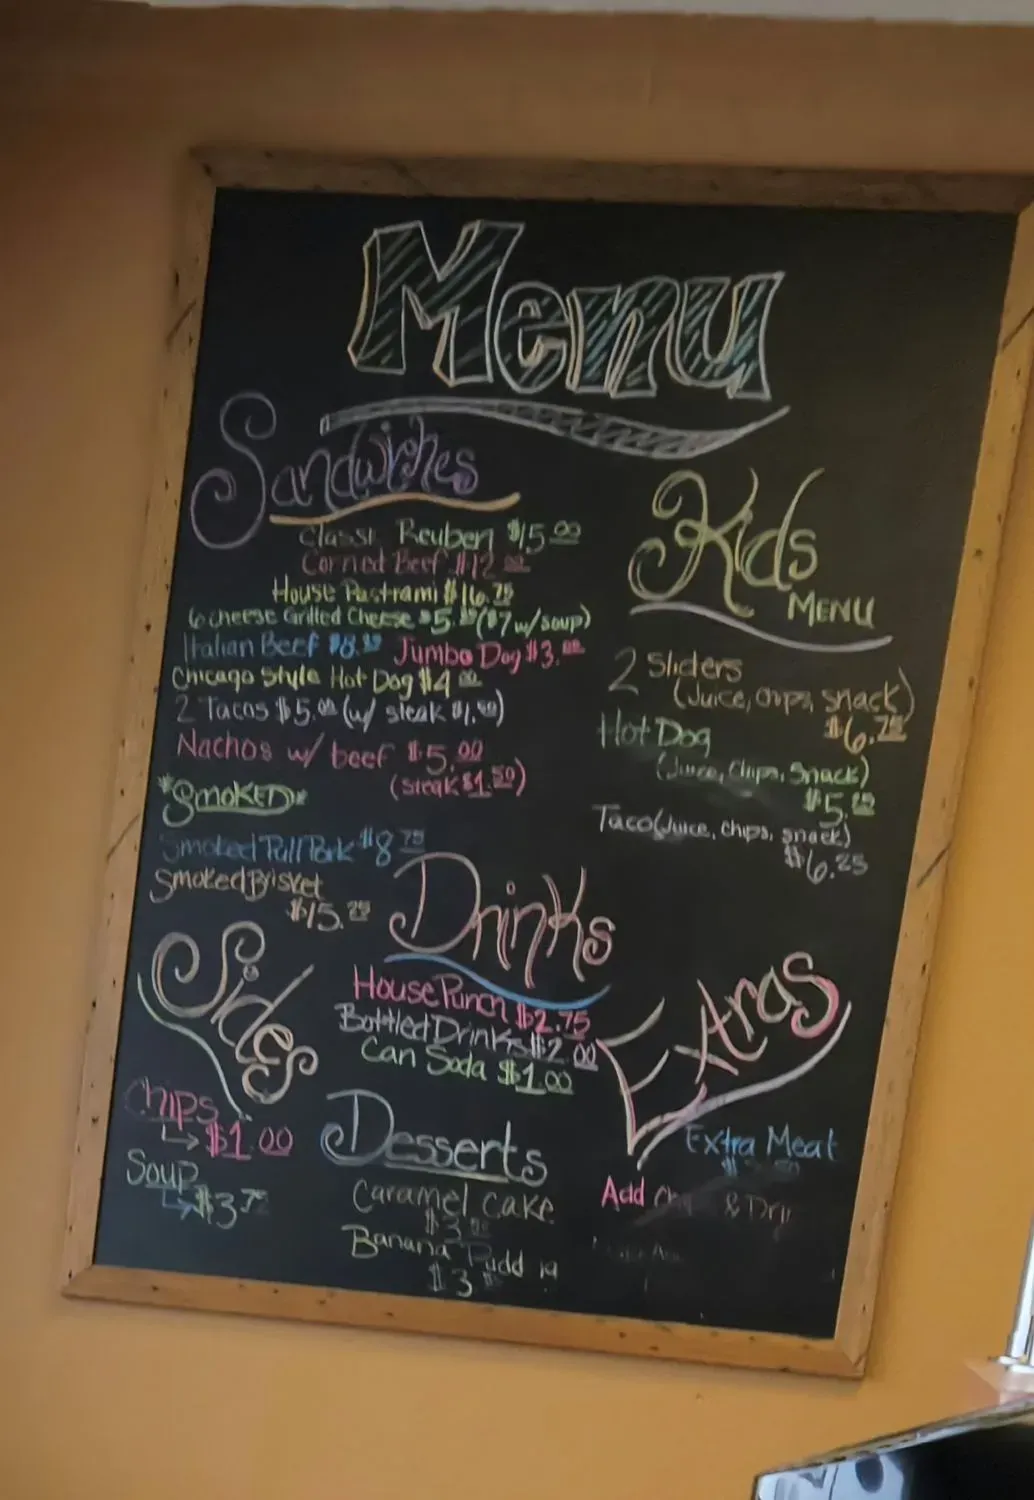 Menu
Sandwiches
Classi Reuben $15.00
Corned Beef $12.00
House Pastrami $16.75
6 cheese Grilled Cheese $5. ($7 w/ soup)
Italian Beef $8. Jumbo Dog $3.00
Chicago Style Hot Dog $4.00
2 Tacos $5.00 (w/ steak $1.50)
Nachos w/ beef $5.00
(steak $1.50)
*Smoked*
Smoked Pull Pork $8.75
Smoked Brisket
$15.25
Kids
Menu
2 Sliders
(Juice, chips, snack)
$6.75
Hot Dog
(Juice, Chips, Snack)
$5.
Taco (Juice, chips, snack)
$6.25
Drinks
House Punch $2.75
Bottled Drinks $2.00
Can Soda $1.00
Sides
Chips
$1.00
Soup
$3.75
Desserts
Caramel Cake
$3.
Banana Pudd
$3
Extras
Extra Meat
Add &